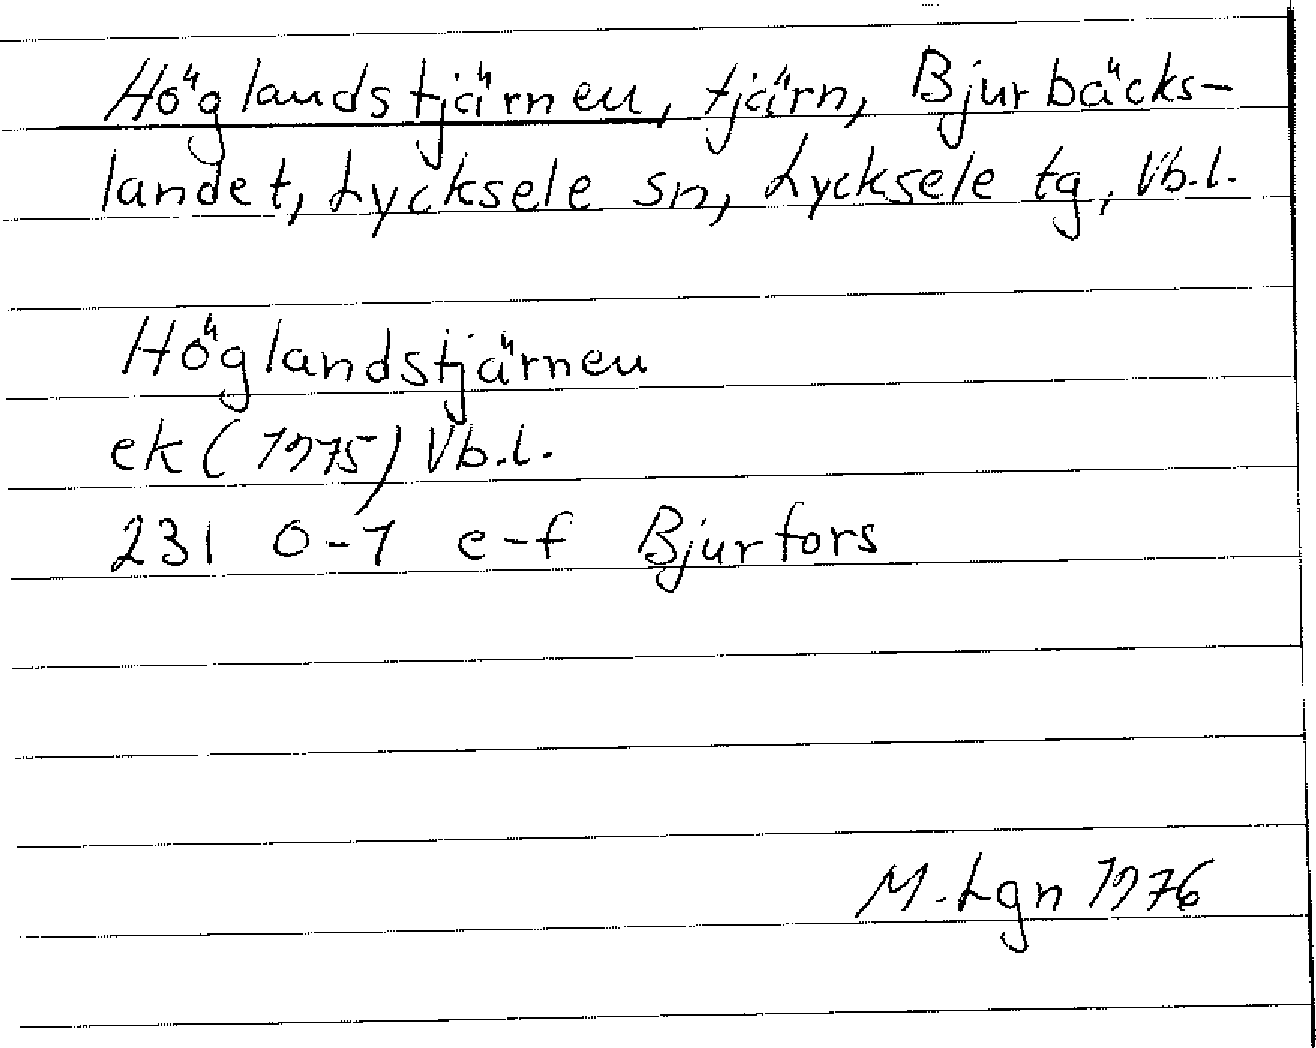 Höglandstjärnen, tjärn, Bjurbäcks-
landet, Lycksele sn, Lycksele tg, Vb.l.
Höglandstjärnen
ek (1975) Vb.l.
23I 0-1 e-f Bjurfors
M. Lgn 1976